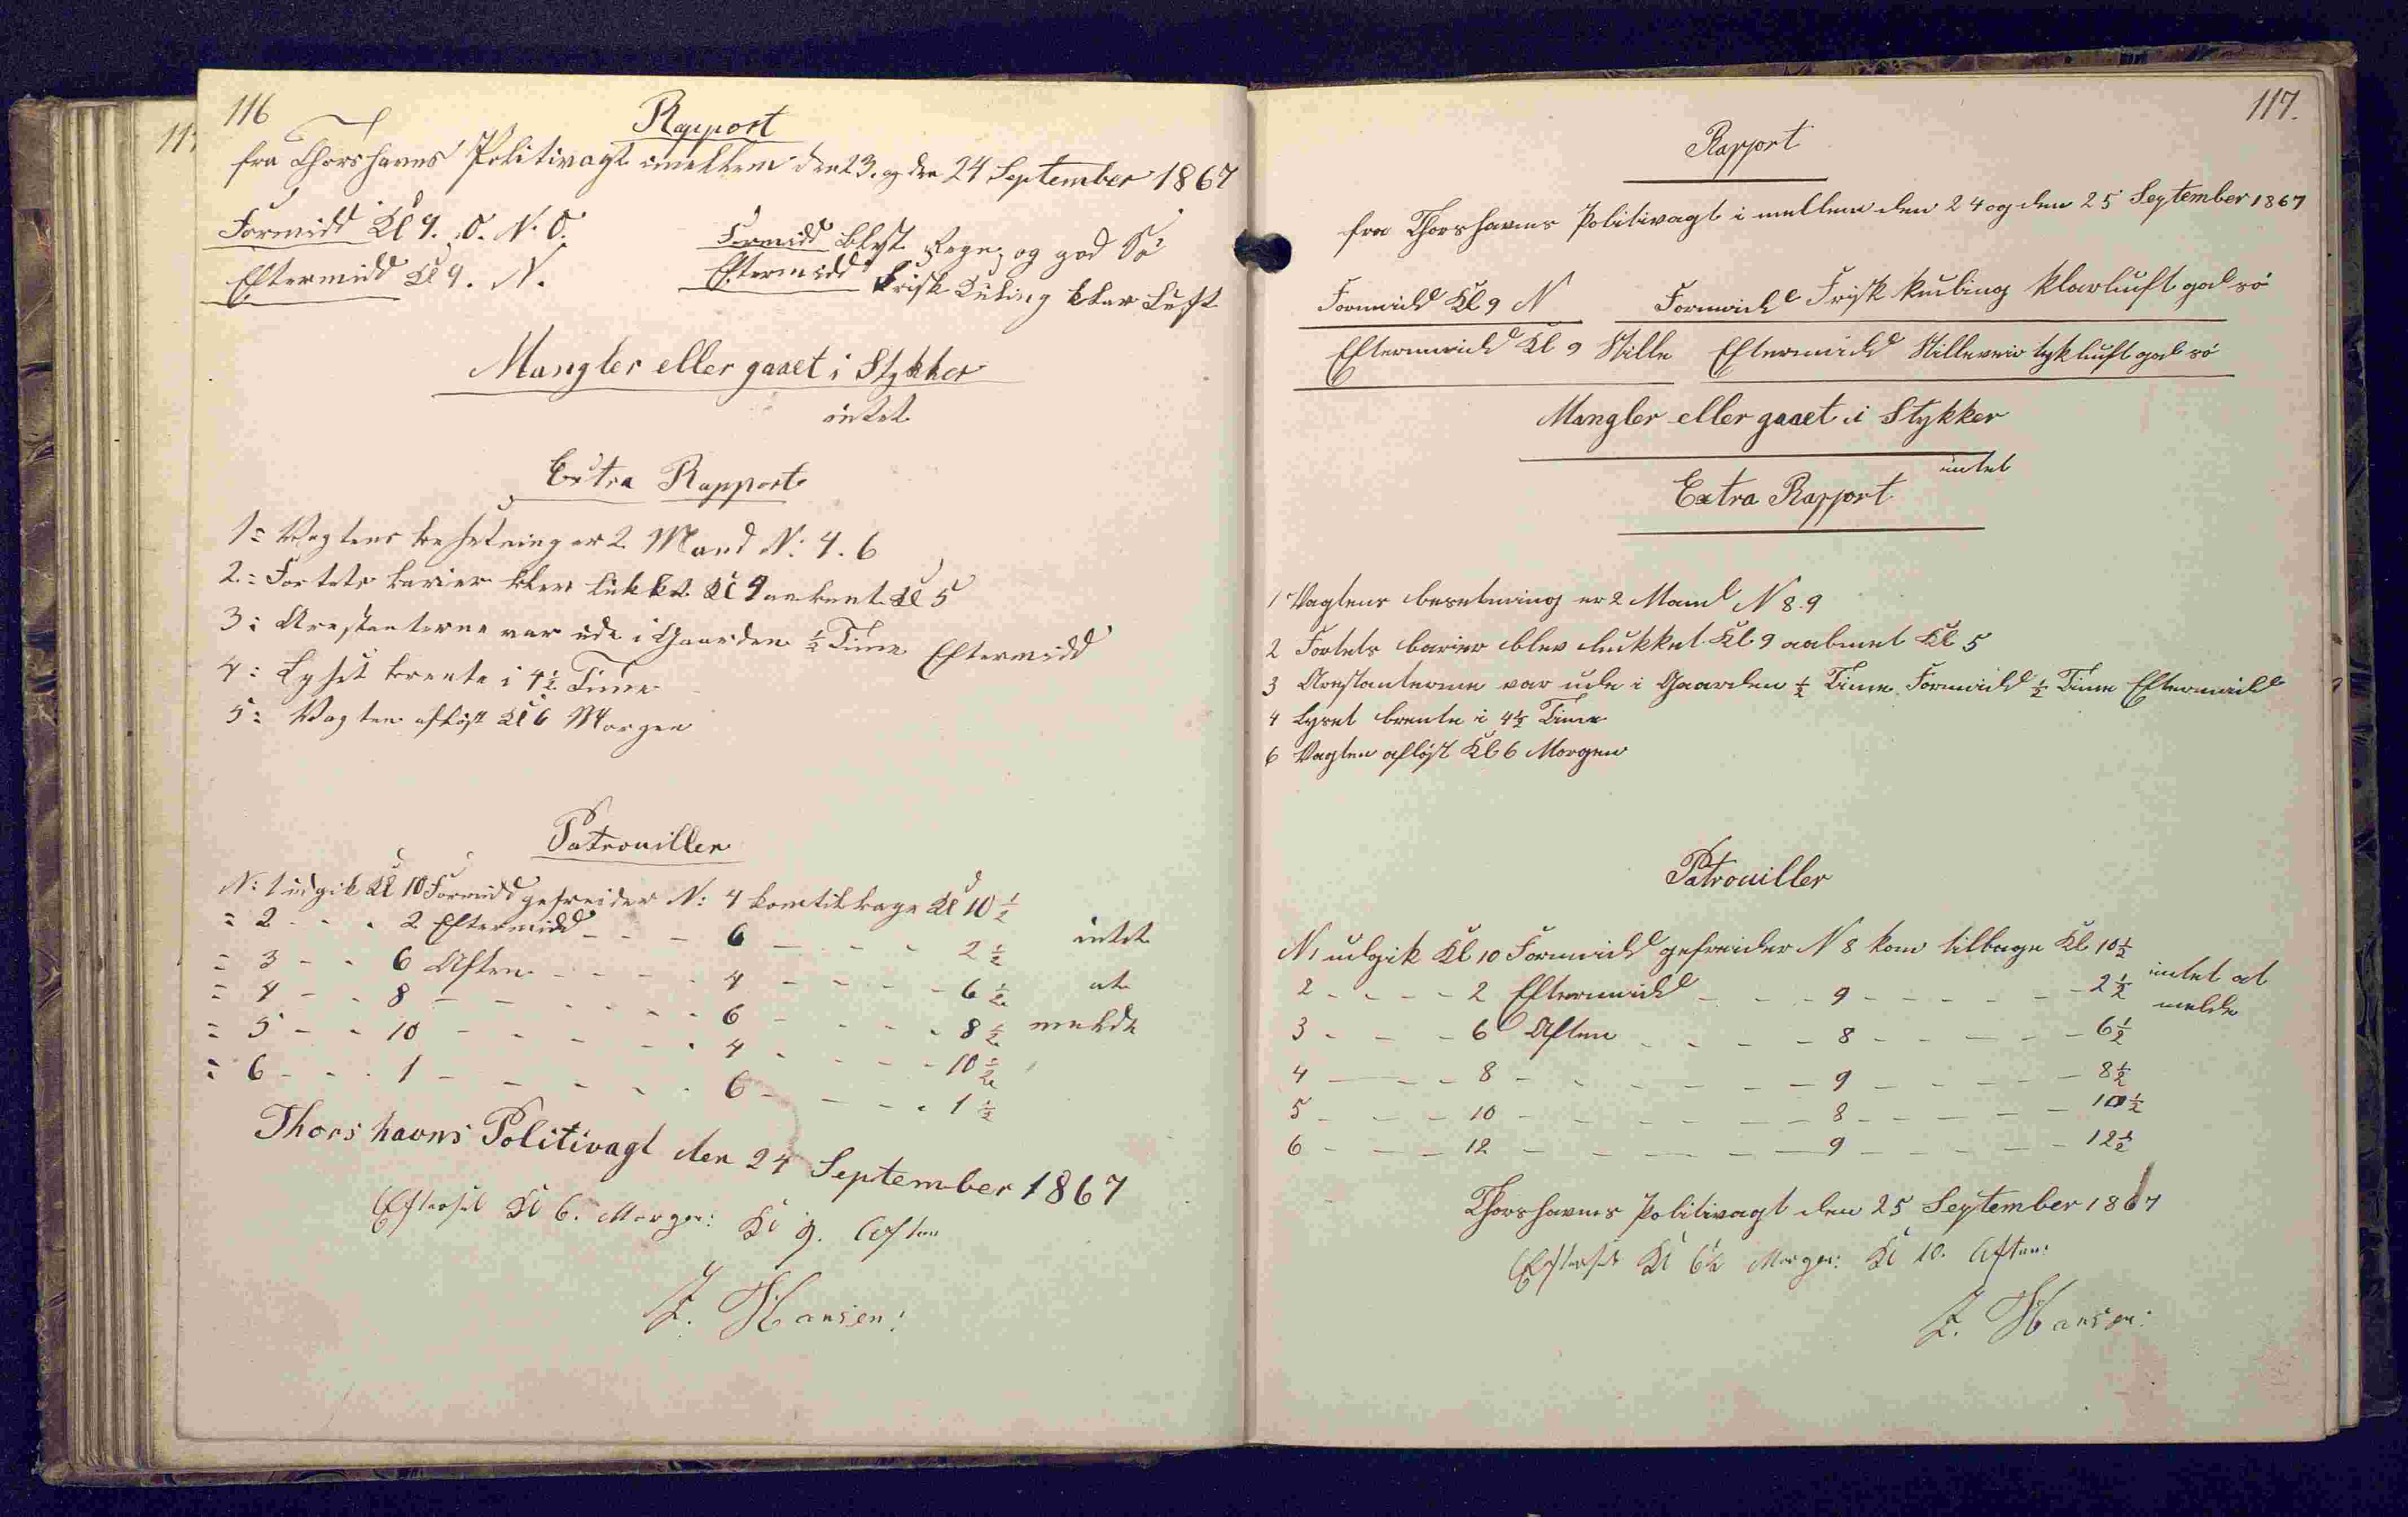 116
Rapport
fra Thorshavns Politivagt imellem den 23. og den 24 September 1867
Formidd Kl 9. O. N. O. Formidd Blæst Regn og god Sö
Eftermidd Kl 9. N. Eftermidd Frisk Kuling klar Luft
Mangler eller gaaet i Stykker
intet
Extra Rapport
1= Vagtens besetning er 2 Mand N: 4. 6
2= Fortets barier blev lukket Kl 9 aabent Kl 5
3= Arestanterne var ude i Gaarden ½ Time Eftermidd
4= Lyset brente i 4½ Time
5= Vagten aflöst Kl 6 Morgen
Patrouiller
N: 1 udgik Kl 10 Formidd gefreider N: 4 kom tilbage Kl 10 ½
= 2 - - 2 Eftermidd - - - 6 - - - 2 ½ intet
= 3 - - 6 Aften - - - - 4 - - - - 6 ½ at
= 4 - - 8 - - - - - 6 - - - - 8 ½ melde
= 5 - - 10 - - - - - 4 - - - - 10 ½
= 6 - - - 1 - - - - - 6 - - - - 1 ½
Thorshavns Politivagt den 24 September 1867
Efterset Kl 6. Morgen: Kl 9. Aften
J. Hansen:
117.
Rapport
fra Thorshavns Politivagt i mellem den 24 og den 25 September 1867
Formidd Kl 9 N Formidd Frisk kuling klarluft god sö
Eftermidd Kl 9 Stille Eftermidd Stilleveir tykluft god sö
Mangler eller gaaet i Stykker
intet
Extra Rapport
1 Vagtens besetning er 2 Mand N 8. 9
2 Fortets barier blev lukket Kl 9 aabnet Kl 5
3 Arestanterne var ude i Gaarden ½ Time Formidd ½ Time Eftermidd
4 Lyset brente i 4½ Time
6 Vagten aflöst Kl 6 Morgen
Patrouiller
N 1 udgik Kl 10 Formidd gefreider N 8 kom tilbage Kl 10½
2 - - - - 2 Eftermidd - - - 9 - - - - - - 2½ intet at
3 - - - 6 Aften - - - - 8 - - - - - 6½ melde
4 - - - 8 - - - - - - 9 - - - - - 8½
5 - - - 10 - - - - - - 8 - - - - - 10½
6 - - - 12 - - - - - 9 - - - - - 12½
Thorshavns Politivagt den 25 September 1867
Efterset Kl 6½ Morgen: Kl 10. Aften:
J. Hansen: